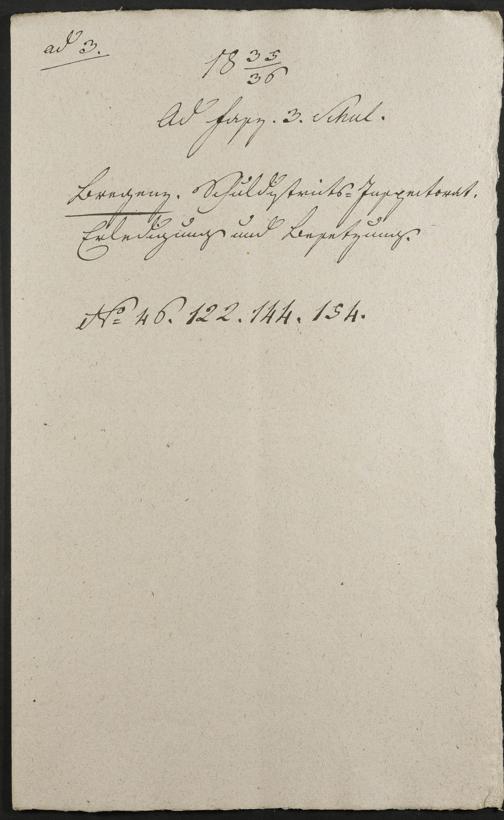 ad 3.
18 35/36
Ad Fasz. 3. Schul.
Bregenz. Schuldistricts=Inspectorat.
Erledigung und Besetzung.
No 46. 122. 144. 154.